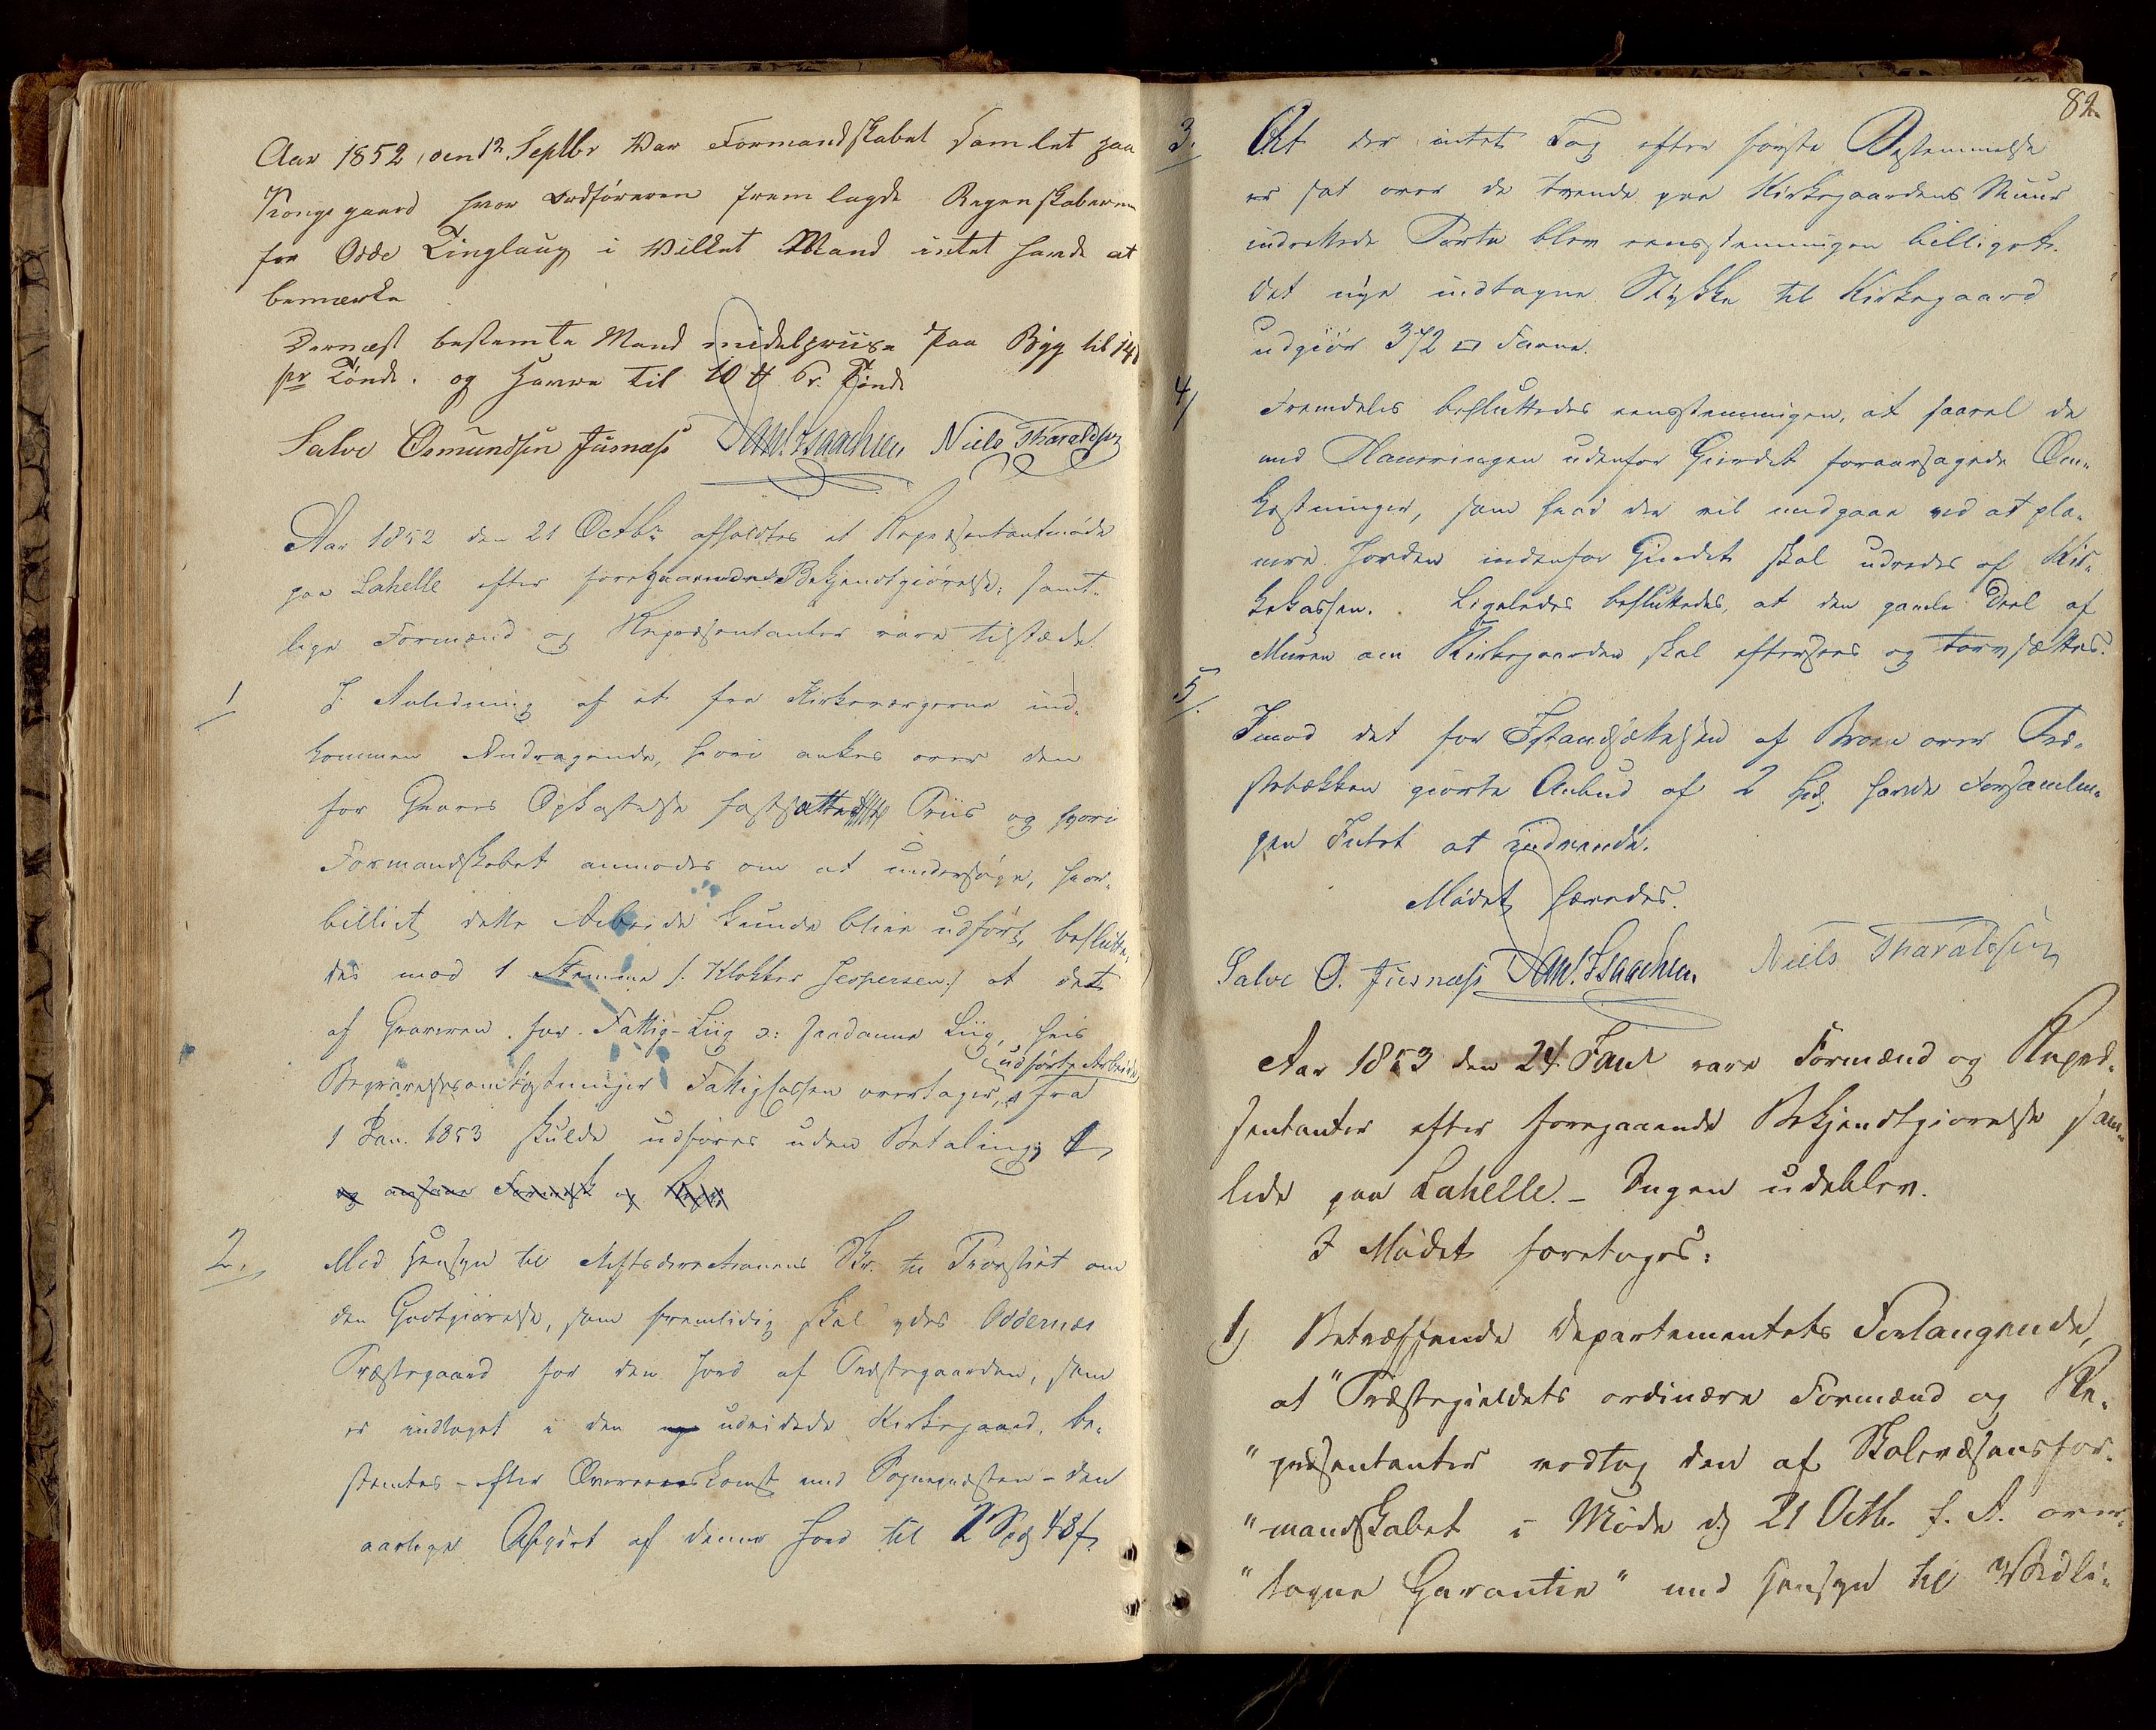 Aar 1852, den 12 Septbr war Formandskabet Samlet paa
Kongsgaard hvor Ordføreren fremlagde Regenskaberne
for Odde Tinglaug i wilket Mand intet havde at
bemærke
Dernæst bestemte Mand midelpriise paa Byg til 14
pr Tønde. og Havre til 10 Pr. Tønde
Salve Osmundsen Jusnæss Dan. Isaachsen Niels Tharaldsen
Aar 1852 den 21 Octbr afholdtes et Repræsentantmøde
paa Lahelle efter foregaaende Bekjendtgiørelse; samt-
lige Formænd og Repræsentanter vare tilstæde.
1 I Anledning af et fra Kirkeværgerne ind-
kommen Andragende, hvori ankes over den
for Graves Opkastelse fastsatte Priis og hvori
Formandskabet anmodes om at undersøge, hvor-
billigt dette Arbeide kunde blive udført, beslutte-
des mod 1 Stemme /: Klokker Jespersen :/ at det
af Graveren for Fattig-Liig ɔ: saadanne Liig, hvis
udførte Arbeide
Begravelsesomkostninger Fattigkassen overtager, fra
1 Jan. 1853 skulde udføres uden Betaling;
2. Med Hensyn til Stiftsdirectionens Skr. til Provstiet om
den Godtgiørelse, som fremtidig skal ydes Oddernes
Præstegaard for den Jord af Præstegaarden, som
er indtaget i den udvidede Kirkegaard, be-
stemtes - efter Overeenskomst med Sognepræsten - den
aarlige Afgivt af denne Jord til 2 Spd 48 s.
82.
3. At der intet Tag efter første Bestemmelse
er sat over de tvende paa Kirkegaardens Muur
indrettede Porte blev eensstemmigen billiget.
Det nye indtagne Stykke til Kirkegaard
udgiør 372 □ Favne.
4/ Fremdeles besluttedes eensstemmigen, at saavel de
med Planeringen udenfor Gierdet foraarsagede Om-
kostninger, som hvad der vil medgaae ved at pla-
nere Jorden indenfor Gierdet skal udredes af Kir-
kekassen. Ligeledes besluttedes, at den gamle Deel af
Muren om Kirkegaarden skal eftersees og torvsættes.
5/. Imod det for Istandsættelsen af Broen over Præ-
stebækken giorte Anbud af 2 Spd. havde Forsamlin-
gen Intet at indvende.
Mødet hævedes.
Salve O. Jusnæss Dan. Isaachsen. Niels Tharaldsen
Aar 1853 den 24. Jan. vare Formænd og Repræ-
sentanter efter foregaaende Bekjendtgiørelse sam-
lede paa Lahelle. - Ingen udeblev.
I Mødet foretoges:
1) Betræffende Departementets Forlangende,
at "Præstegieldets ordinære Formænd og Re-
" præsentanter vedtog den af Skolevæsensfor-
" mandskabet i Møde d. 21 Octb. f. A. over-
" tagne Garantie" med Hensyn til